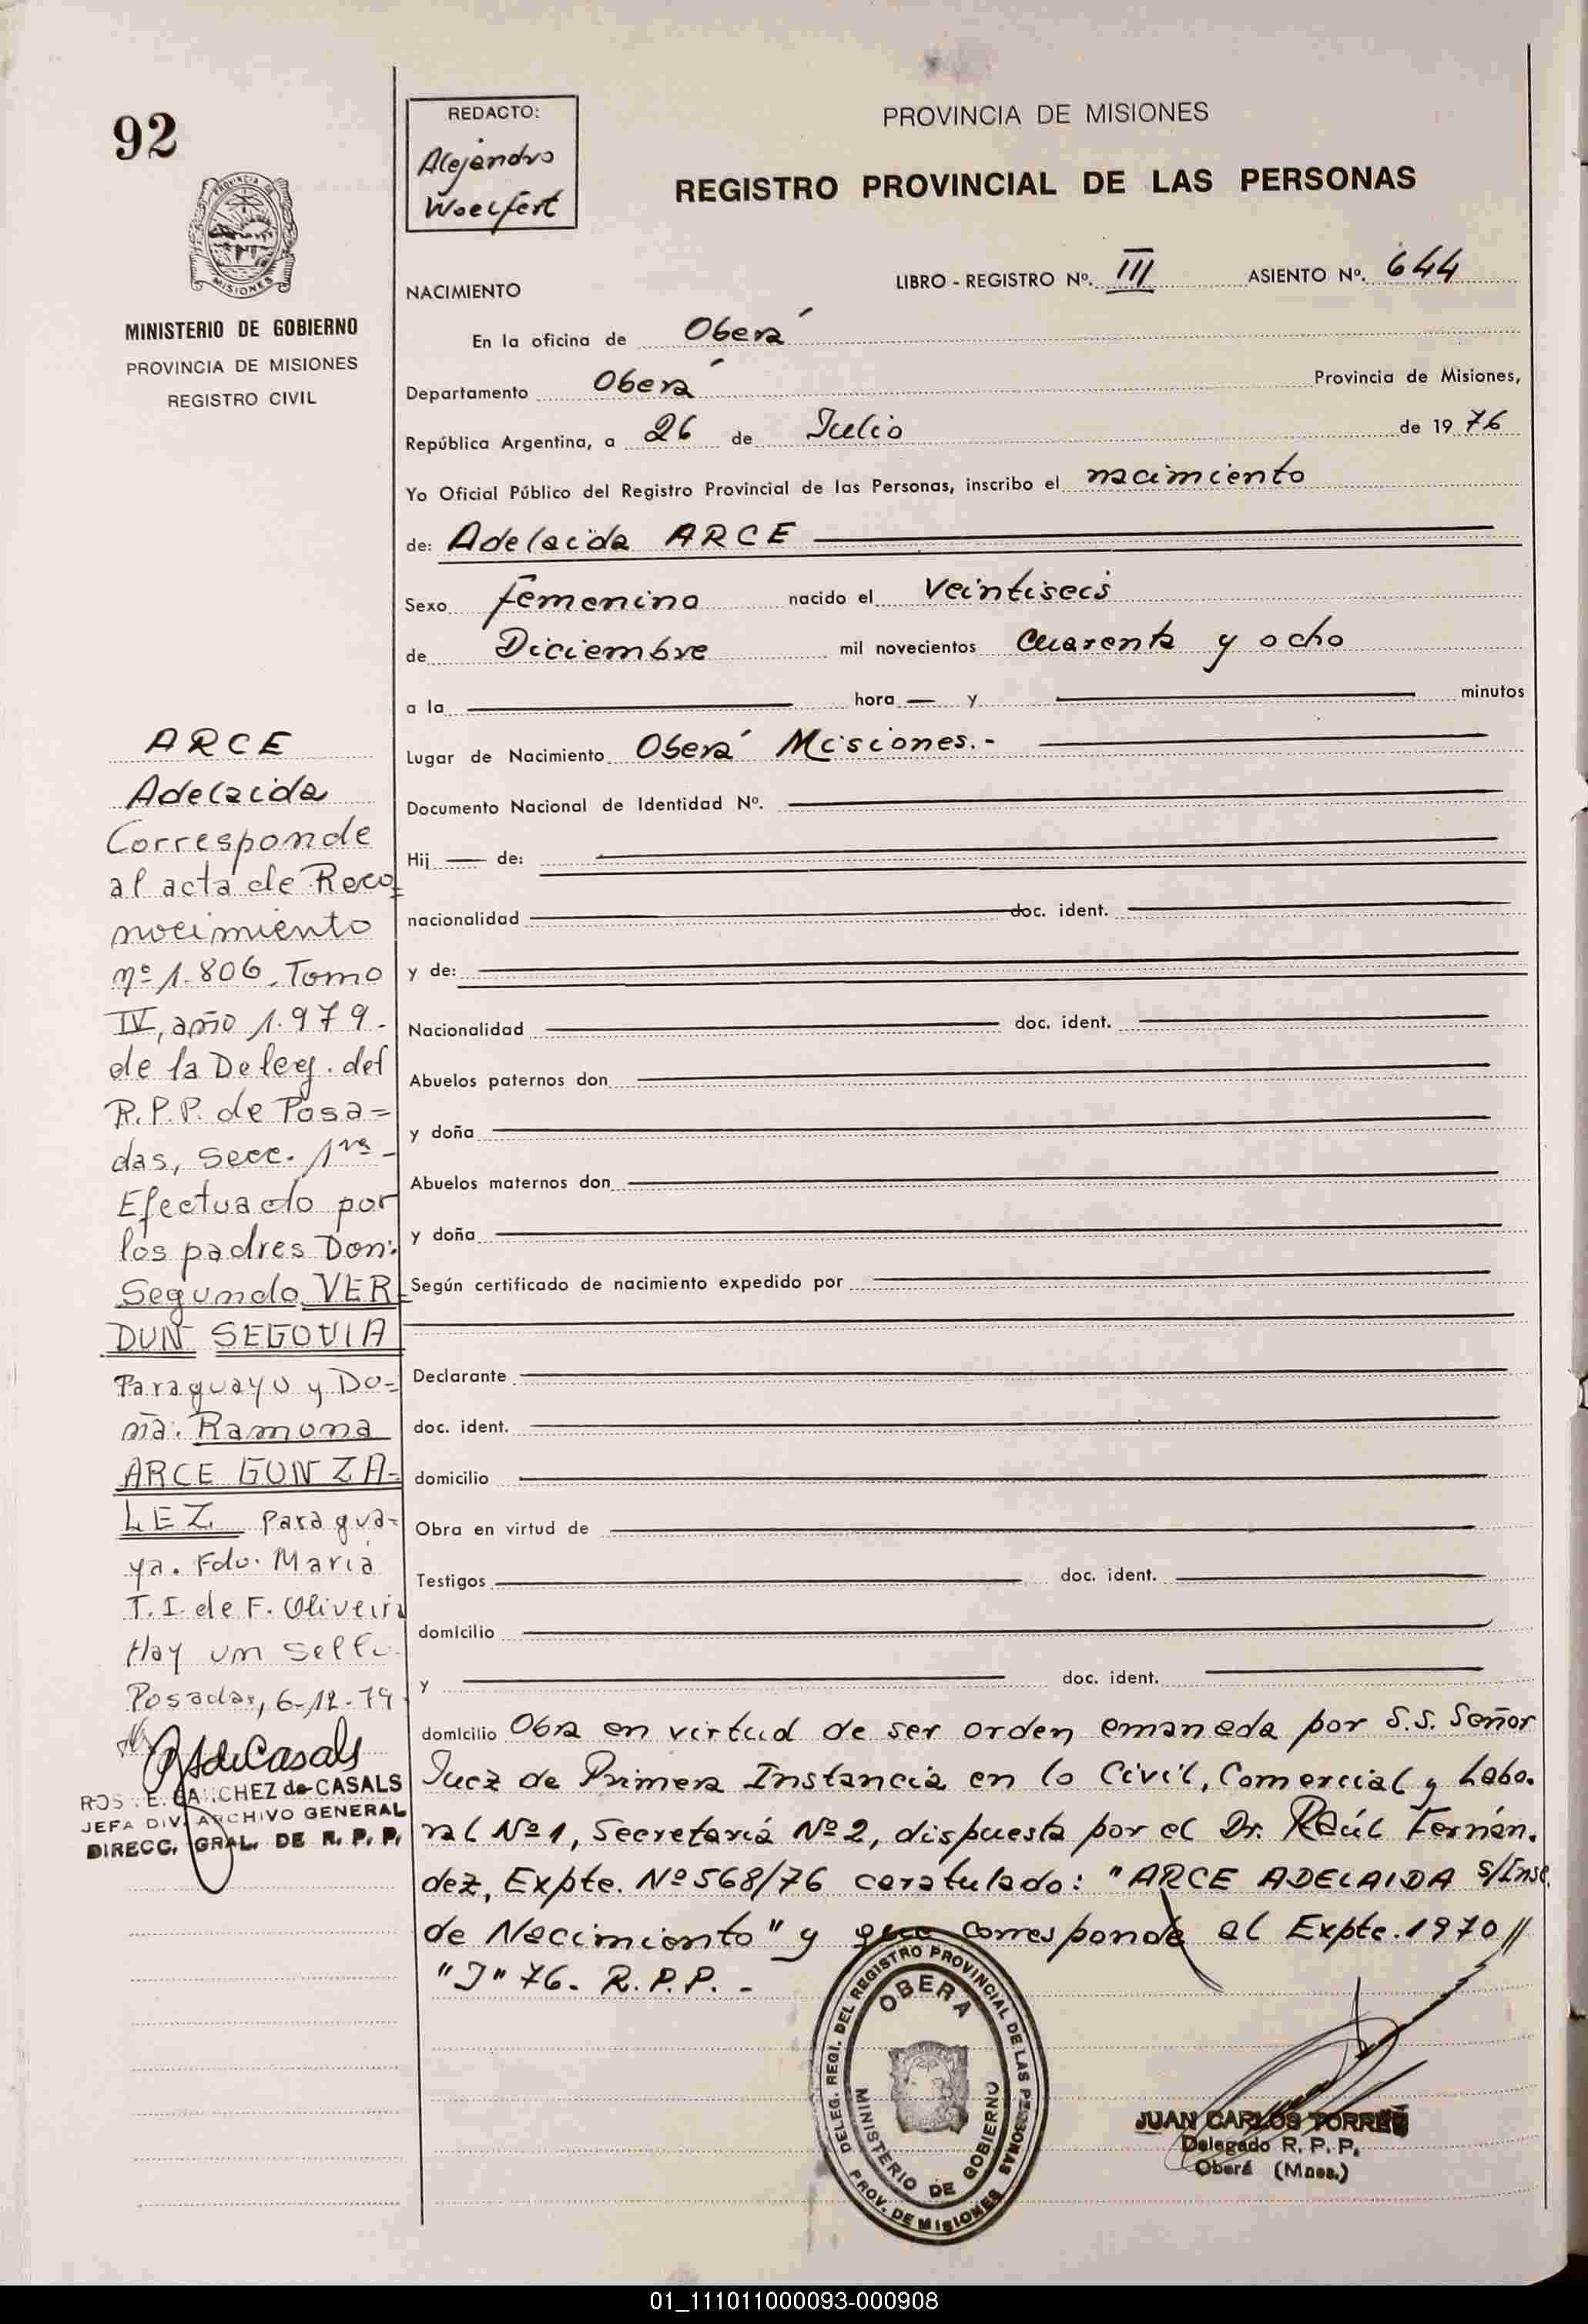 92
PROVINCIA DE MISIONES
MINISTERIO DE GOBIERNO
PROVINCIA DE MISIONES
REGISTRO CIVIL
ARCE
Adelaida
Corresponde
al acta de Reco=
nocimiento
nº 1.806. Tomo
IV, año 1.979.
de la Deleg. del
R.P.P. de Posa=
das, Secc. 1ra -
Efectuado por
los padres Don:
Segundo VER=
DUN SEGOVIA
Paraguayo y Do=
ña: Ramona
ARCE GONZA=
LEZ paragua=
ya. Fdo. Maria
T.I. de F. Oliveira
Hay un sello
Posadas, 6-12-79
CHEZ de CASALS
JEFA DIV. ARCHIVO GENERAL
DIRECC. GRAL. DE R. P. P.
REDACTO:
Alejandro
Woelfert
PROVINCIA DE MISIONES
REGISTRO PROVINCIAL DE LAS PERSONAS
LIBRO - REGISTRO Nº. III ASIENTO Nº. 644
NACIMIENTO
En la oficina de Oberá
Departamento Oberá Provincia de Misiones,
República Argentina, a 26 de Julio de 19 76
Yo Oficial Público del Registro Provincial de las Personas, inscribo el nacimiento
de: Adelaida ARCE
Sexo femenino nacido el veintiseis
de Diciembre mil novecientos cuarenta y ocho
a la hora y minutos
Lugar de Nacimiento Oberá Misiones.-
Documento Nacional de Identidad Nº.
Hij de:
nacionalidad doc. ident.
y de:
Nacionalidad doc. ident.
Abuelos paternos don
y doña
Abuelos maternos don
y doña
Según certificado de nacimiento expedido por
Declarante
doc. ident.
domicilio
Obra en virtud de
Testigos doc. ident.
domicilio
y doc. ident.
domicilio Obra en virtud de ser orden emaneda por S.S. Señor
Juez de Primera Instancia en lo Civil, Comercial y Labo.
ral Nº 1, Secretaría Nº 2, dispuesta por el Dr. Raúl Fernán.
dez, Expte. Nº 568/76 caratulado: "ARCE ADELAIDA S/Insc.
de Nacimiento" y que corresponde al Expte. 1970//
"J" 76. R.P.P. -
DELEG. REGI. DEL REGISTRO PROVINCIAL DE LAS PERSONAS
OBERA
MINISTERIO DE GOBIERNO
PROV. DE MISIONES
JUAN CARLOS TORRES
Delegado R. P. P.
Oberá (Mnes.)
01_111011000093-000908